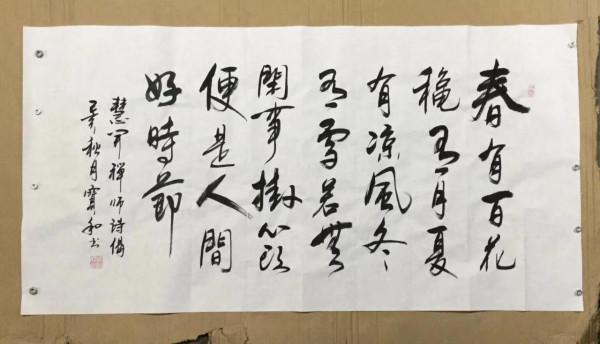 春有百花
穐有月夏
有涼風冬
有雪若無
閑事掛心頭
便是人間
好時節
慧開禪師詩偈
己亥秋月寶和书